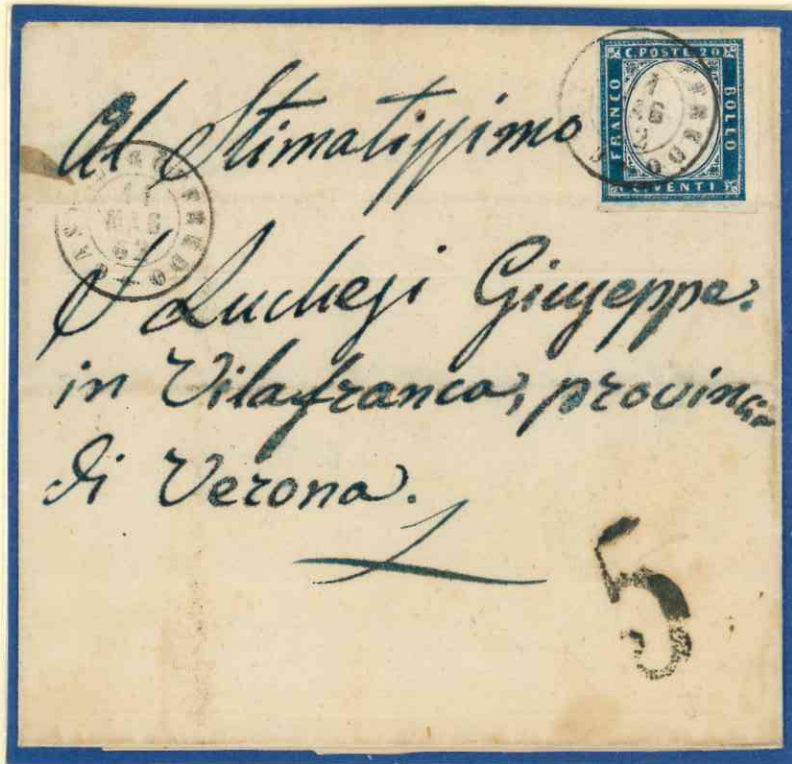 C. POSTE 20
FRANCO
BOLLO
VENTI
Al Stimatissimo
11
MAG
62
S Luchesi Giuseppe.
in Vilafranca, provincia
di Verona.
5